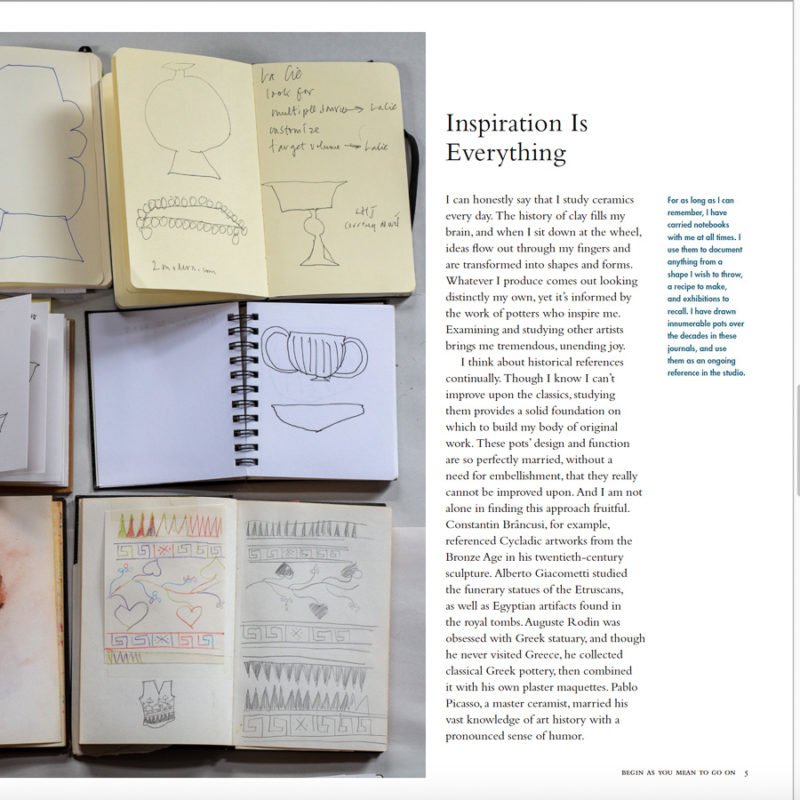 look for
multiple sources → Lalie
customize
target volume → Lalie
2modern.com
Inspiration Is
Everything
I can honestly say that I study ceramics
every day. The history of clay fills my
brain, and when I sit down at the wheel,
ideas flow out through my fingers and
are transformed into shapes and forms.
Whatever I produce comes out looking
distinctly my own, yet it’s informed by
the work of potters who inspire me.
Examining and studying other artists
brings me tremendous, unending joy.
I think about historical references
continually. Though I know I can’t
improve upon the classics, studying
them provides a solid foundation on
which to build my body of original
work. These pots’ design and function
are so perfectly married, without a
need for embellishment, that they really
cannot be improved upon. And I am not
alone in finding this approach fruitful.
Constantin Brâncusi, for example,
referenced Cycladic artworks from the
Bronze Age in his twentieth-century
sculpture. Alberto Giacometti studied
the funerary statues of the Etruscans,
as well as Egyptian artifacts found in
the royal tombs. Auguste Rodin was
obsessed with Greek statuary, and though
he never visited Greece, he collected
classical Greek pottery, then combined
it with his own plaster maquettes. Pablo
Picasso, a master ceramist, married his
vast knowledge of art history with a
pronounced sense of humor.
For as long as I can
remember, I have
carried notebooks
with me at all times. I
use them to document
anything from a
shape I wish to throw,
a recipe to make,
and exhibitions to
recall. I have drawn
innumerable pots over
the decades in these
journals, and use
them as an ongoing
reference in the studio.
BEGIN AS YOU MEAN TO GO ON 5